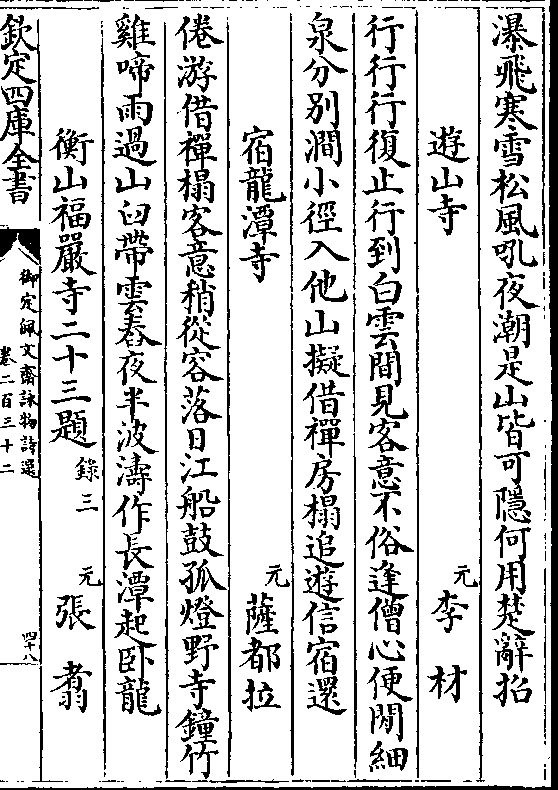 瀑飛寒雪松風吼夜潮是山皆可隱何用楚辭招
遊山寺 元 李材
行行行復止行到白雲間見客意不俗逢僧心便閒細
泉分別澗小徑入他山擬借禪房榻追遊信宿還
宿龍潭寺 元 薩都拉
倦游借禪榻客意稍從容落日江船鼓孤燈野寺鐘竹
雞啼雨過山臼帶雲舂夜半波濤作長潭起卧龍
衡山福嚴寺二十三題 錄三 元 張翥
欽定四庫全書
御定佩文齋詠物詩選
卷二百三十二
四十八